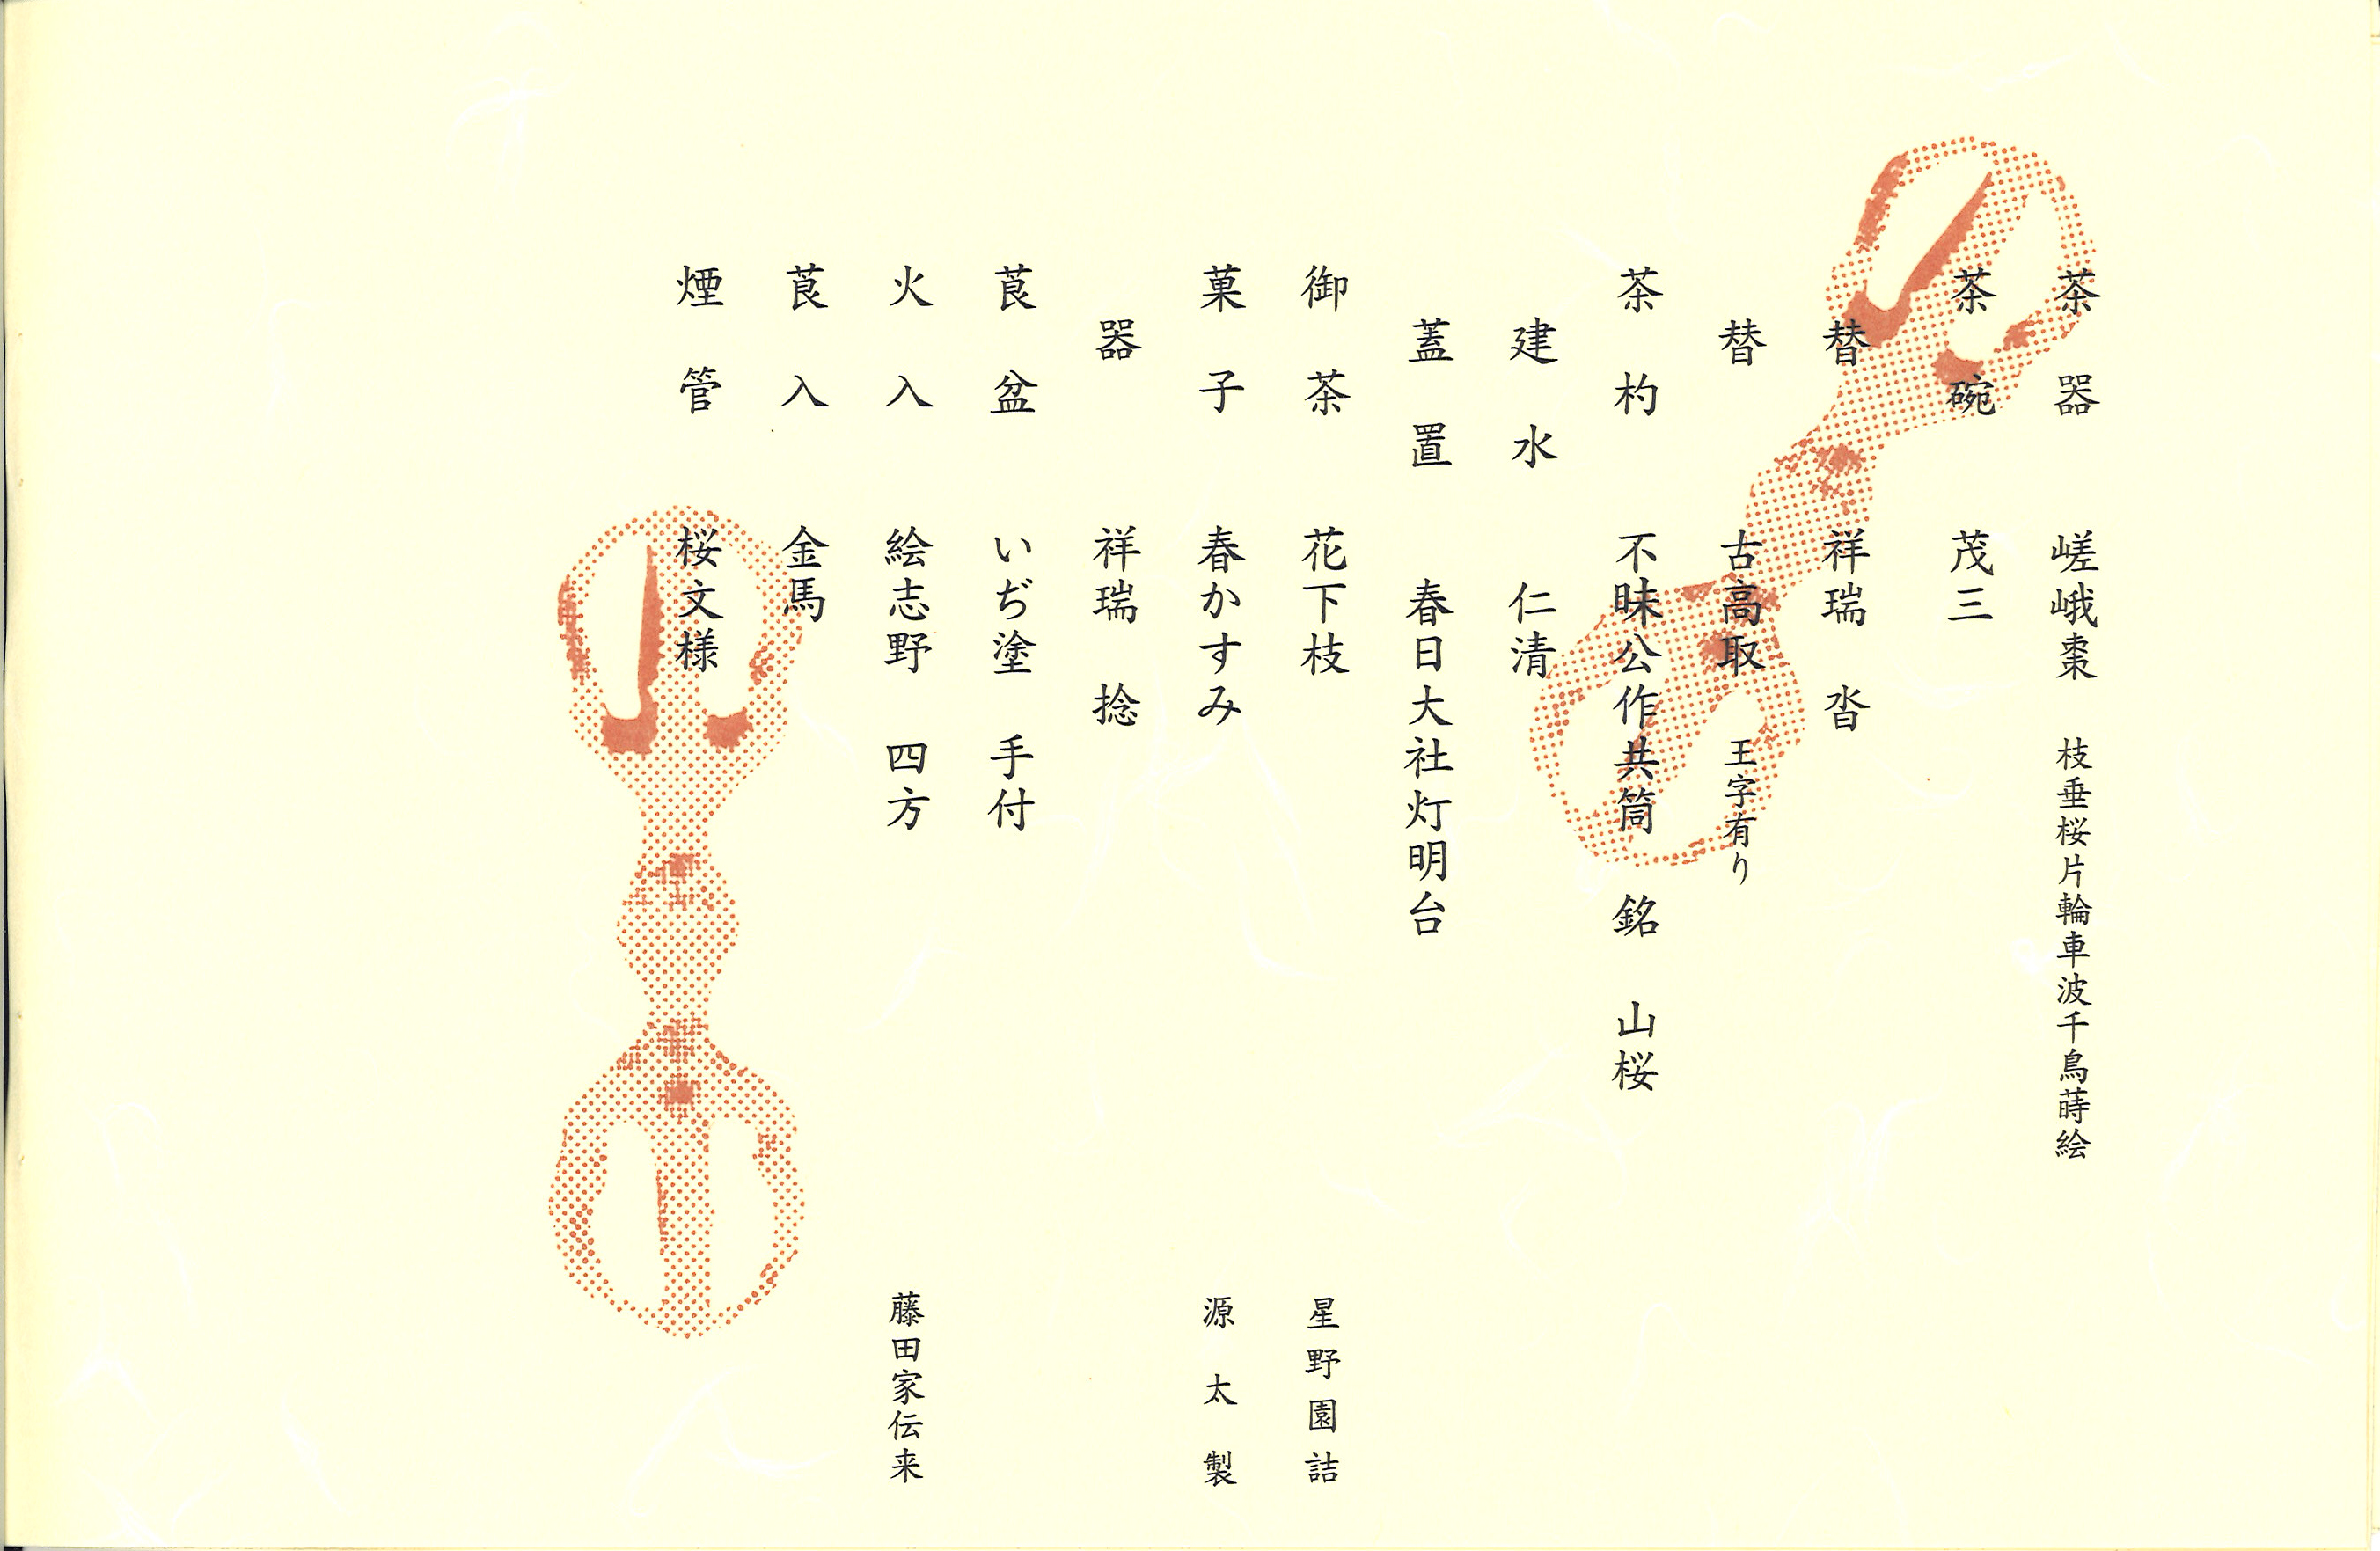 茶器　嵯峨棗　枝垂桜片輪車波千鳥蒔絵
茶碗　茂三
替　祥瑞　沓
替　古高取　王字有り
茶杓　不昧公作共筒　銘　山桜
建水　仁清
蓋置　春日大社灯明台
御茶　花下枝　星野園詰
菓子　春かすみ　源太製
器　祥瑞　捻
莨盆　いぢ塗　手付
火入　絵志野　四方　藤田家伝来
莨入　金馬
煙管　桜文様